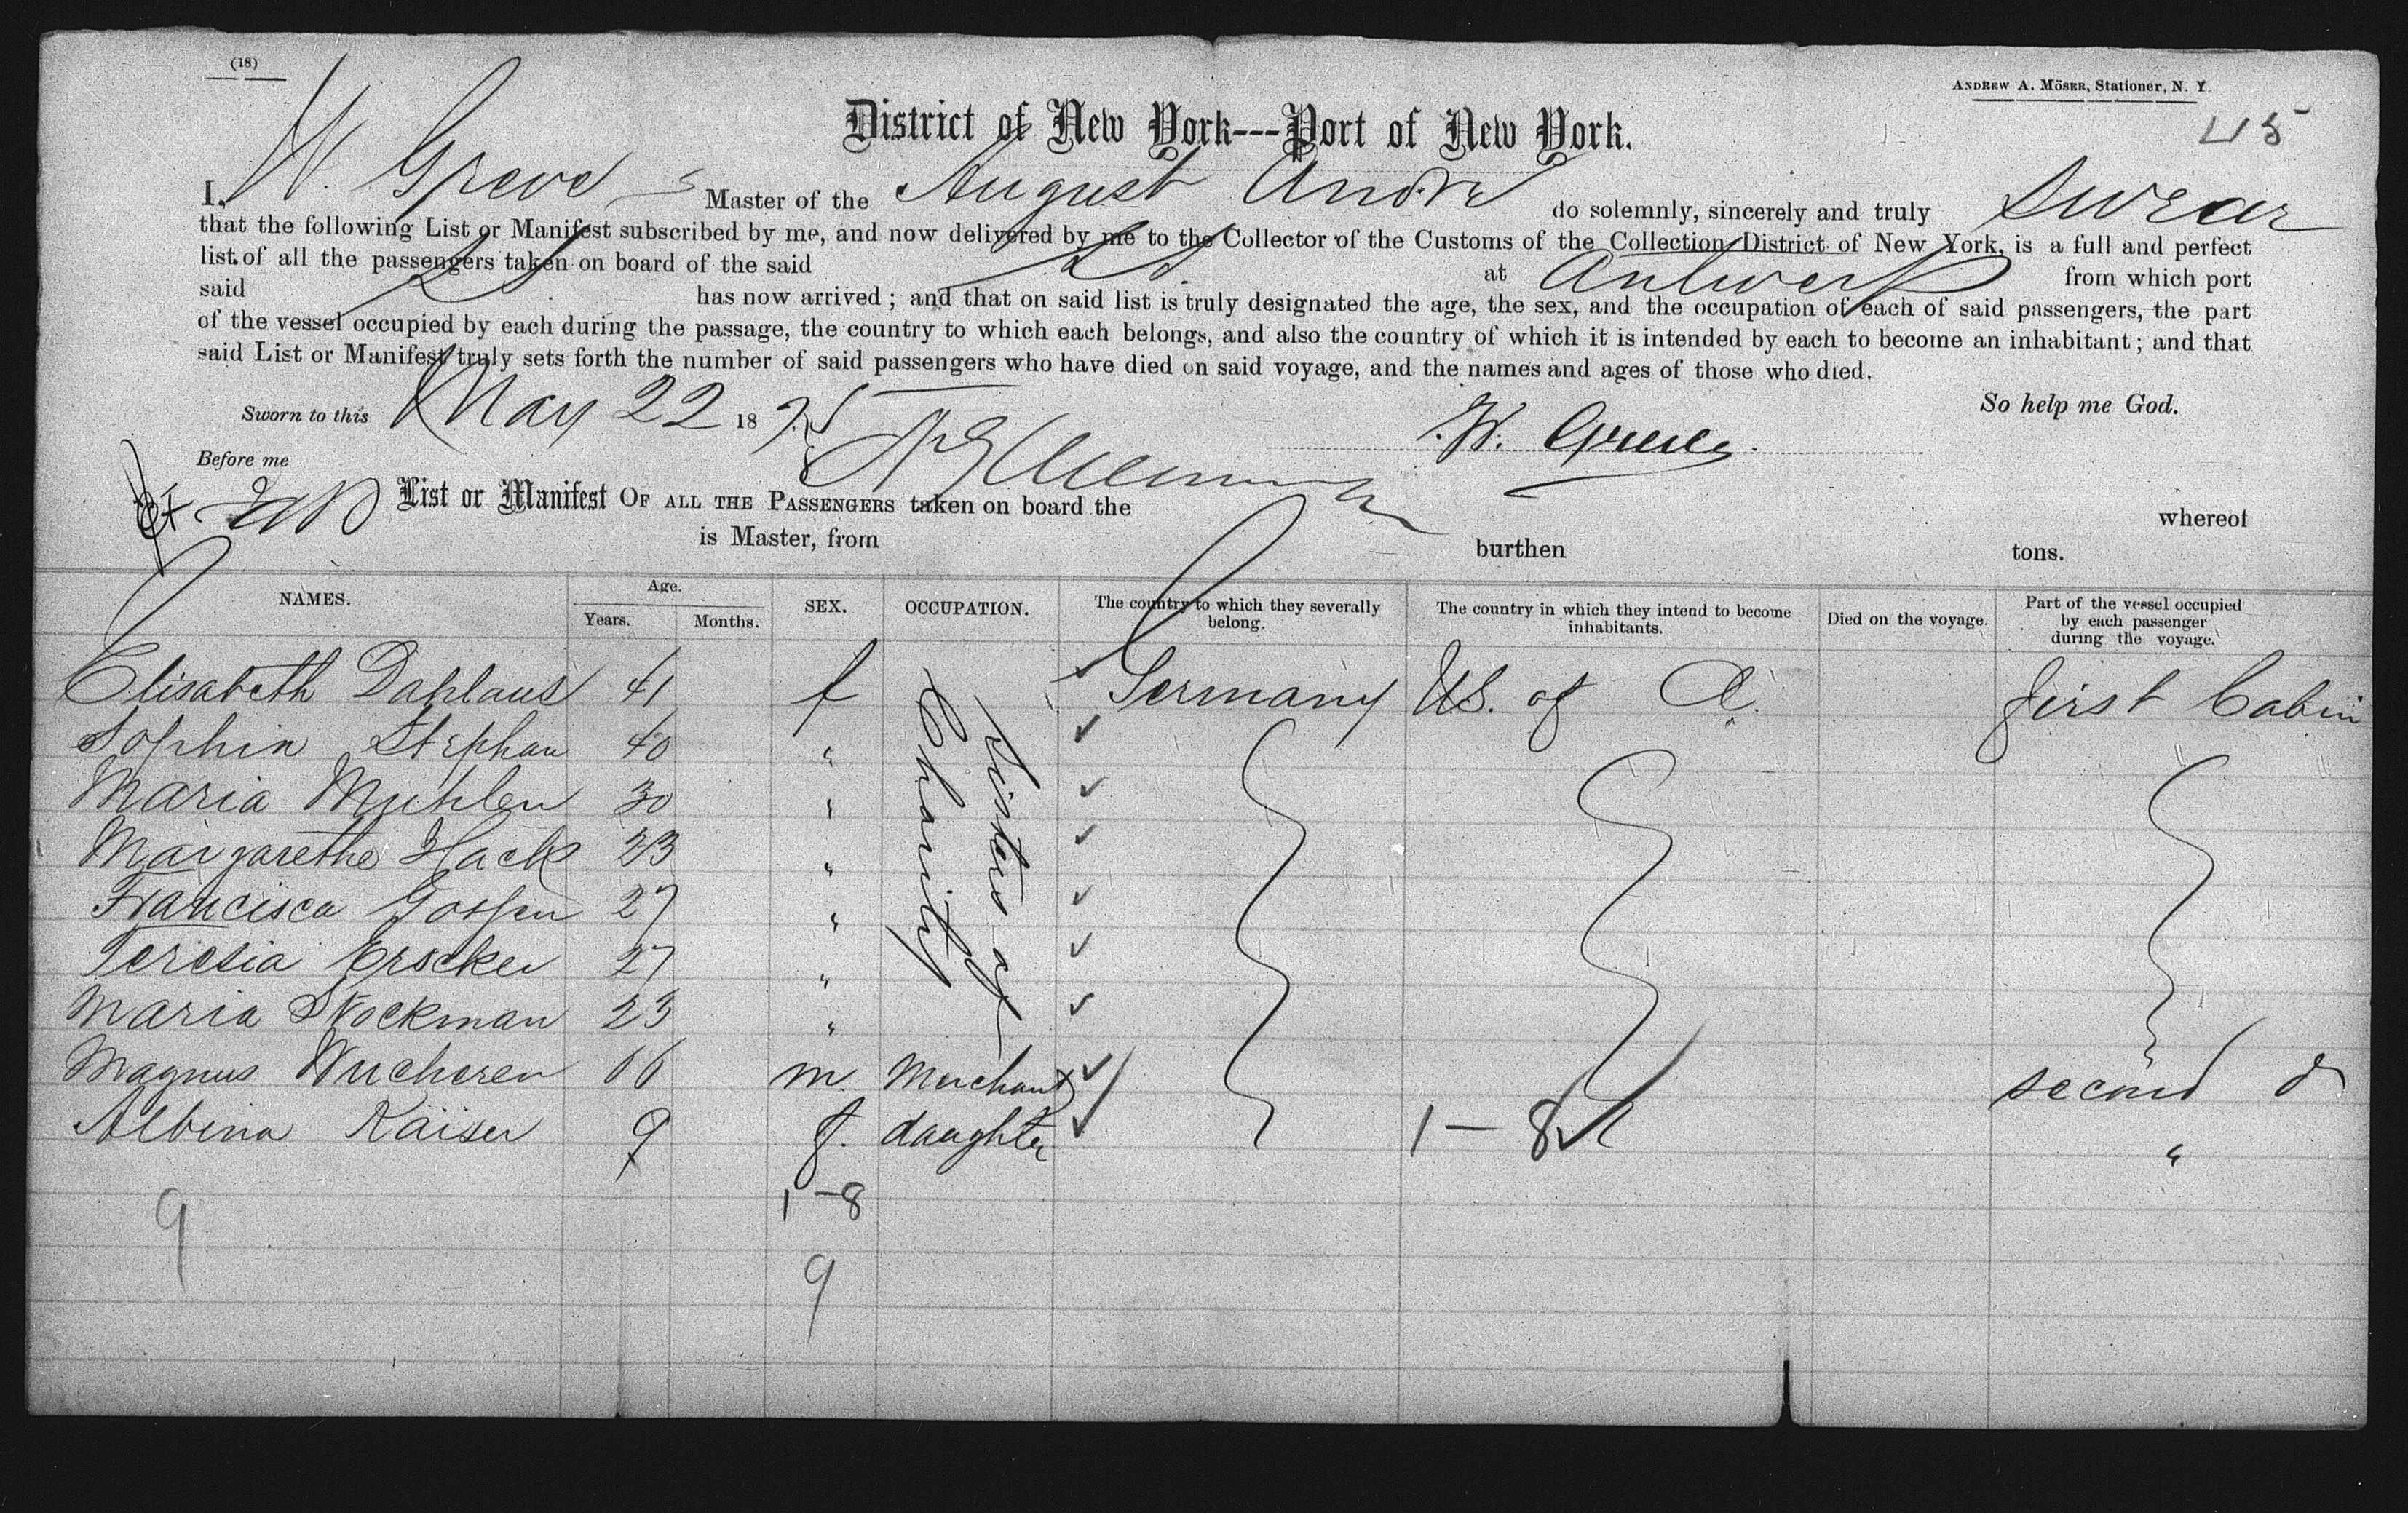 (18)
ANDREW A. MÖSER, Stationer, N. Y.
45
District of New York---Port of New York.
I, W. Greve Master of the August André do solemnly, sincerely and truly swear
that the following List or Manifest subscribed by me, and now delivered by me to the Collector of the Customs of the Collection District of New York, is a full and perfect
list of all the passengers taken on board of the said at Antwerp from which port
said has now arrived; and that on said list is truly designated the age, the sex, and the occupation of each of said passengers, the part
of the vessel occupied by each during the passage, the country to which each belongs, and also the country of which it is intended by each to become an inhabitant; and that
said List or Manifest truly sets forth the number of said passengers who have died on said voyage, and the names and ages of those who died.
Sworn to this May 22 1875 So help me God.
W. Greve.
Before me
List or Manifest OF ALL THE PASSENGERS taken on board the whereof
is Master, from burthen tons.
NAMES. Age. Years. Months. SEX. OCCUPATION. The country to which they severally belong. The country in which they intend to become inhabitants. Died on the voyage. Part of the vessel occupied by each passenger during the voyage.
Elisabeth Dahlaus 41 f Sisters of Charity Germany US. of A. first Cabin
Sophia Stephan 40 "
Maria Muhlen 30 "
Margarethe Hack 23 "
Francisca 27 "
Teresia 27 "
Maria Stockman 23 "
Magnus Wucherer 66 m. Merchant second d
Albina Kaiser 9 f. daughter 1 - 8 "
1 - 8
9
9